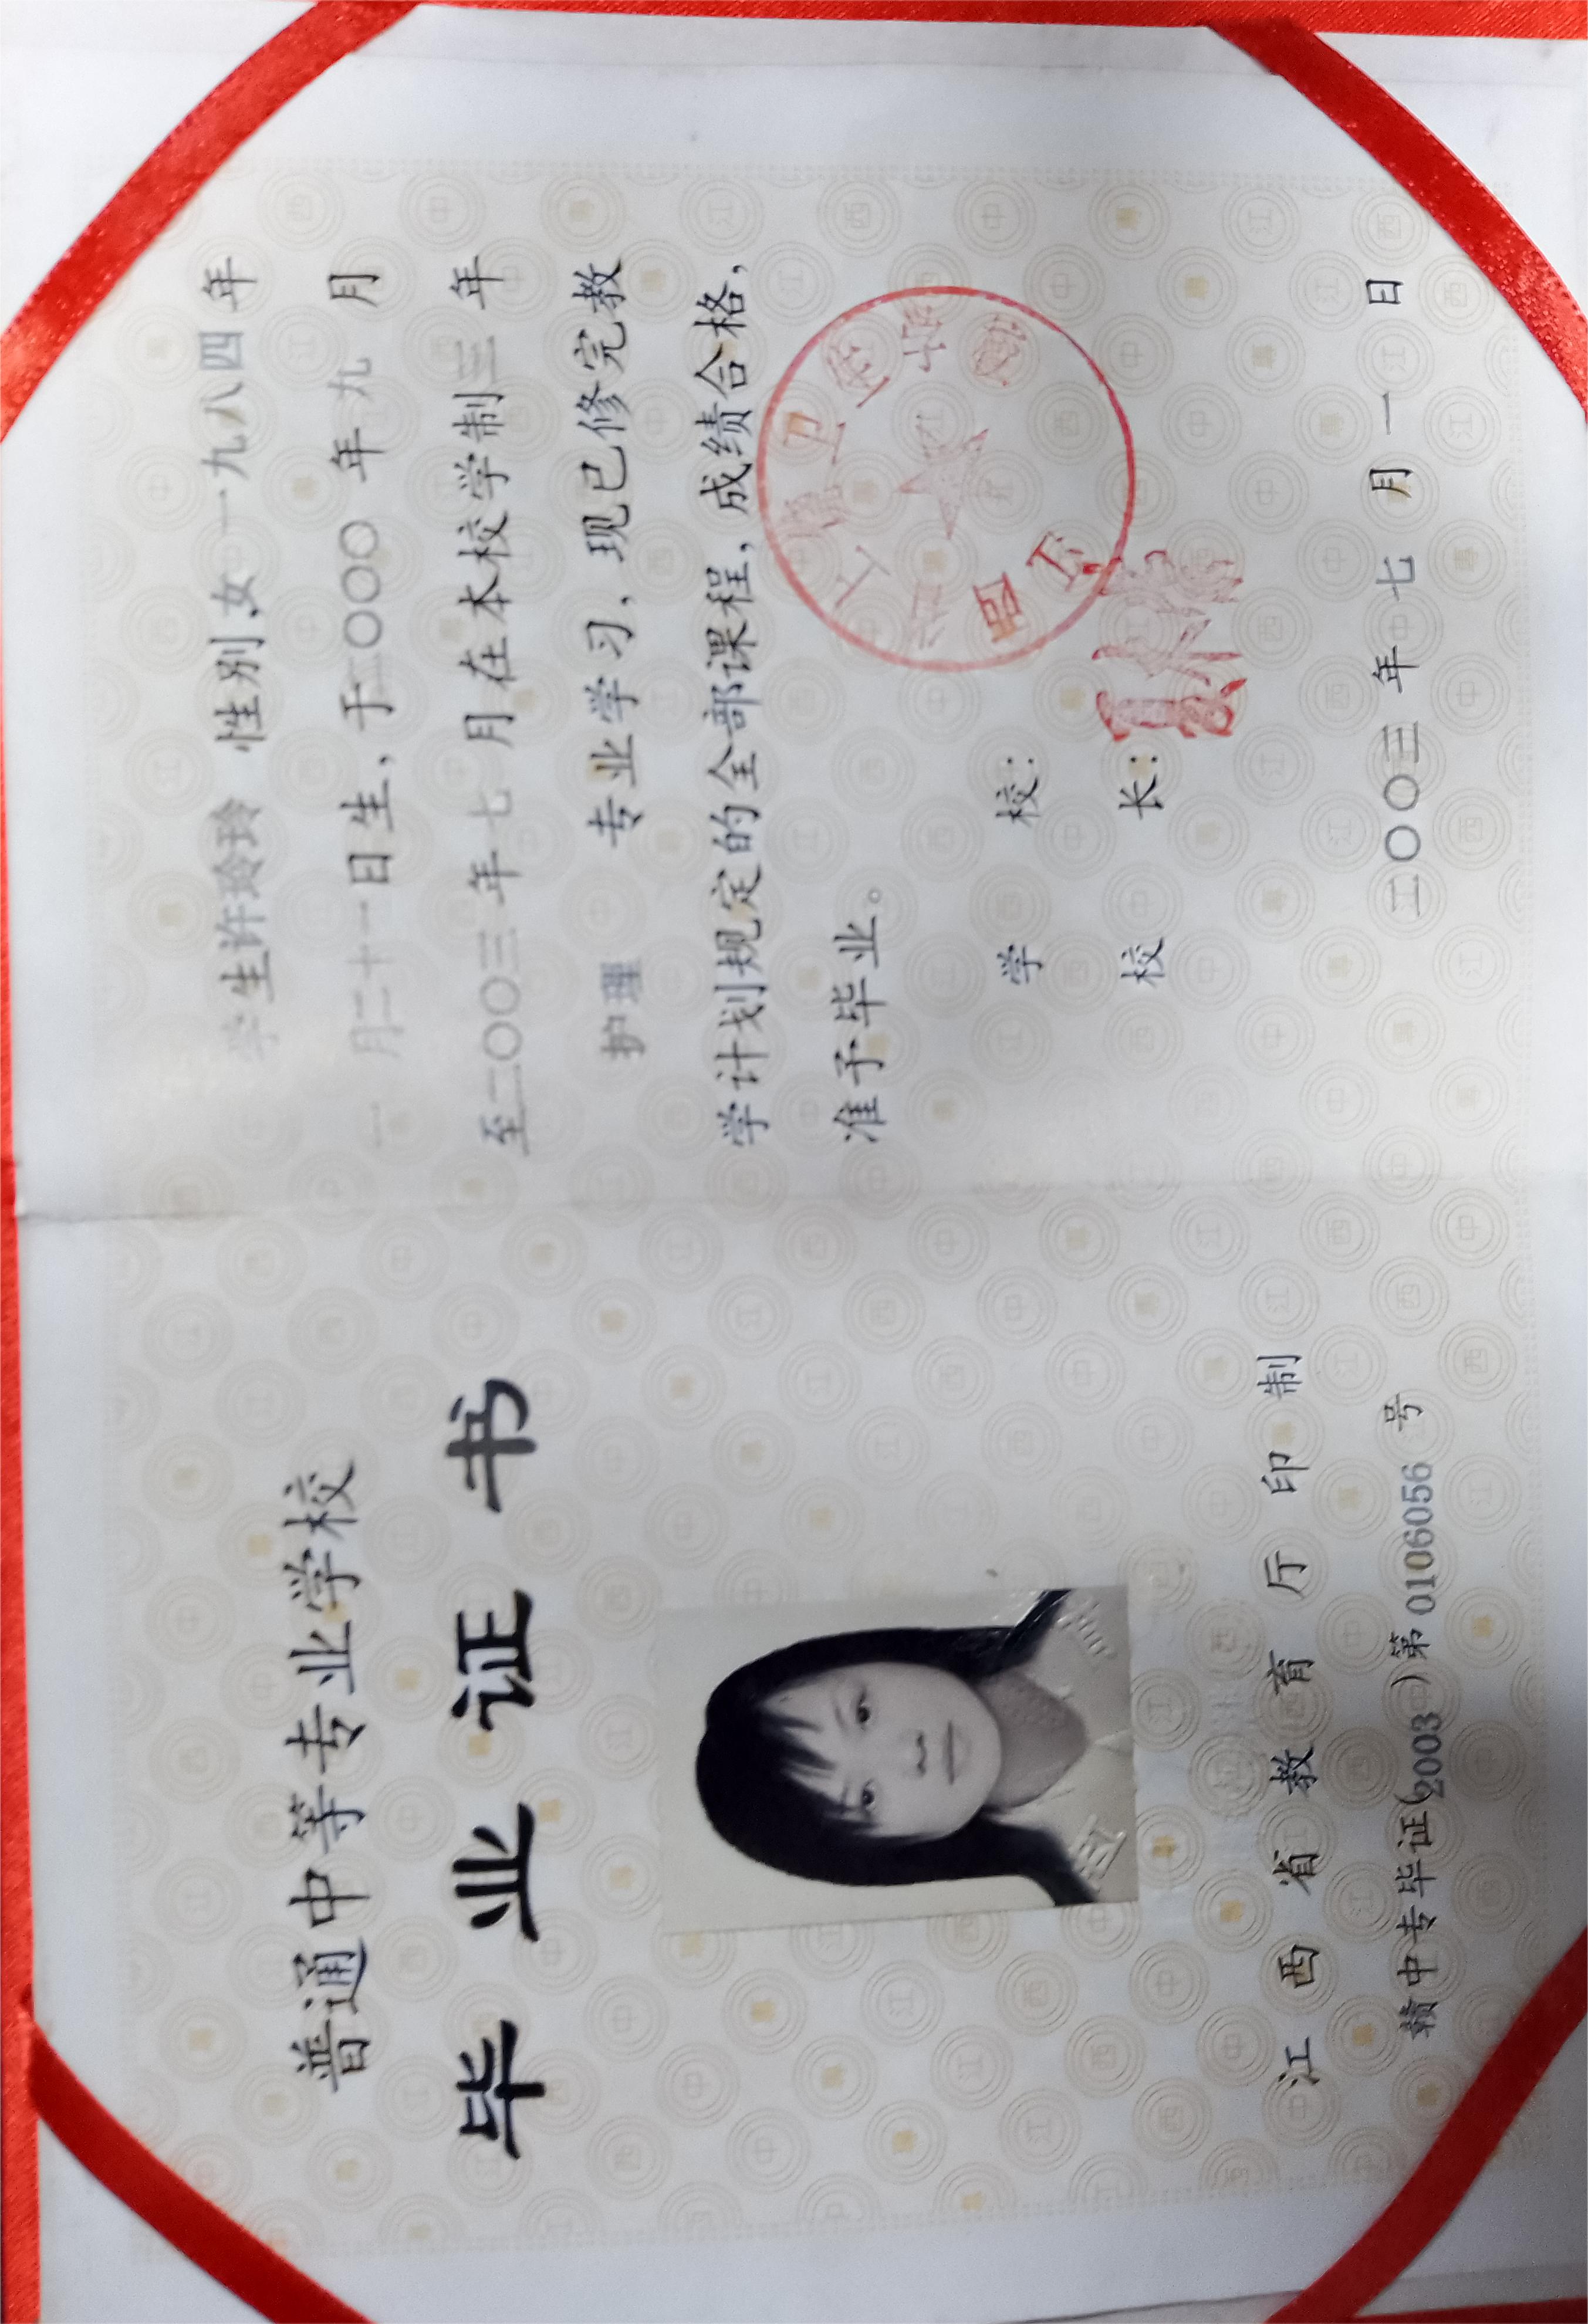 普通中等专业学校
毕业证书
江西省教育厅印制
赣中专毕证(2003)第0106056号
学生许玲玲 性别女一九八四年
一月二十一日生，于二〇〇〇年九月
至二〇〇三年七月在本校学制三年
护理 专业学习，现已修完教
学计划规定的全部课程，成绩合格，
准予毕业。
学校：
江西
卫
学校
校长：
二〇〇三年七月一日